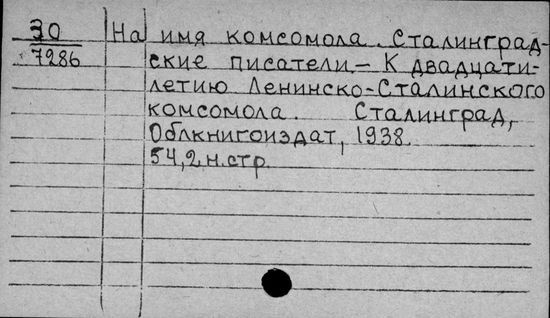 30
7286
На имя комсомола. Сталинград-
ские писатели – К двадцати-
летию Ленинско-Сталинского
комсомола. Сталинград,
Облкнигоиздат, 1938.
54, 2 н. стр.